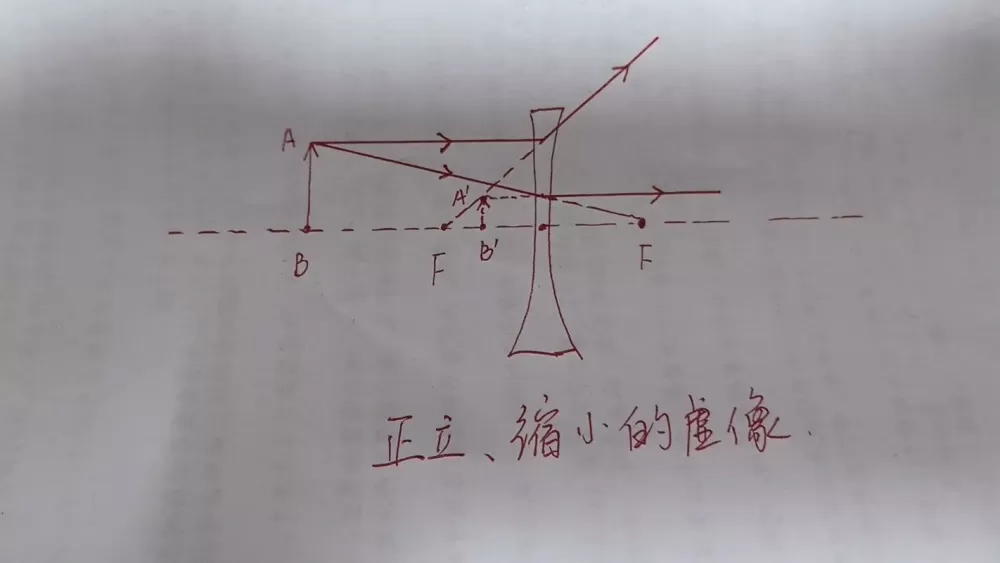 A
A'
B
F
B'
F
正立、缩小的虚像.